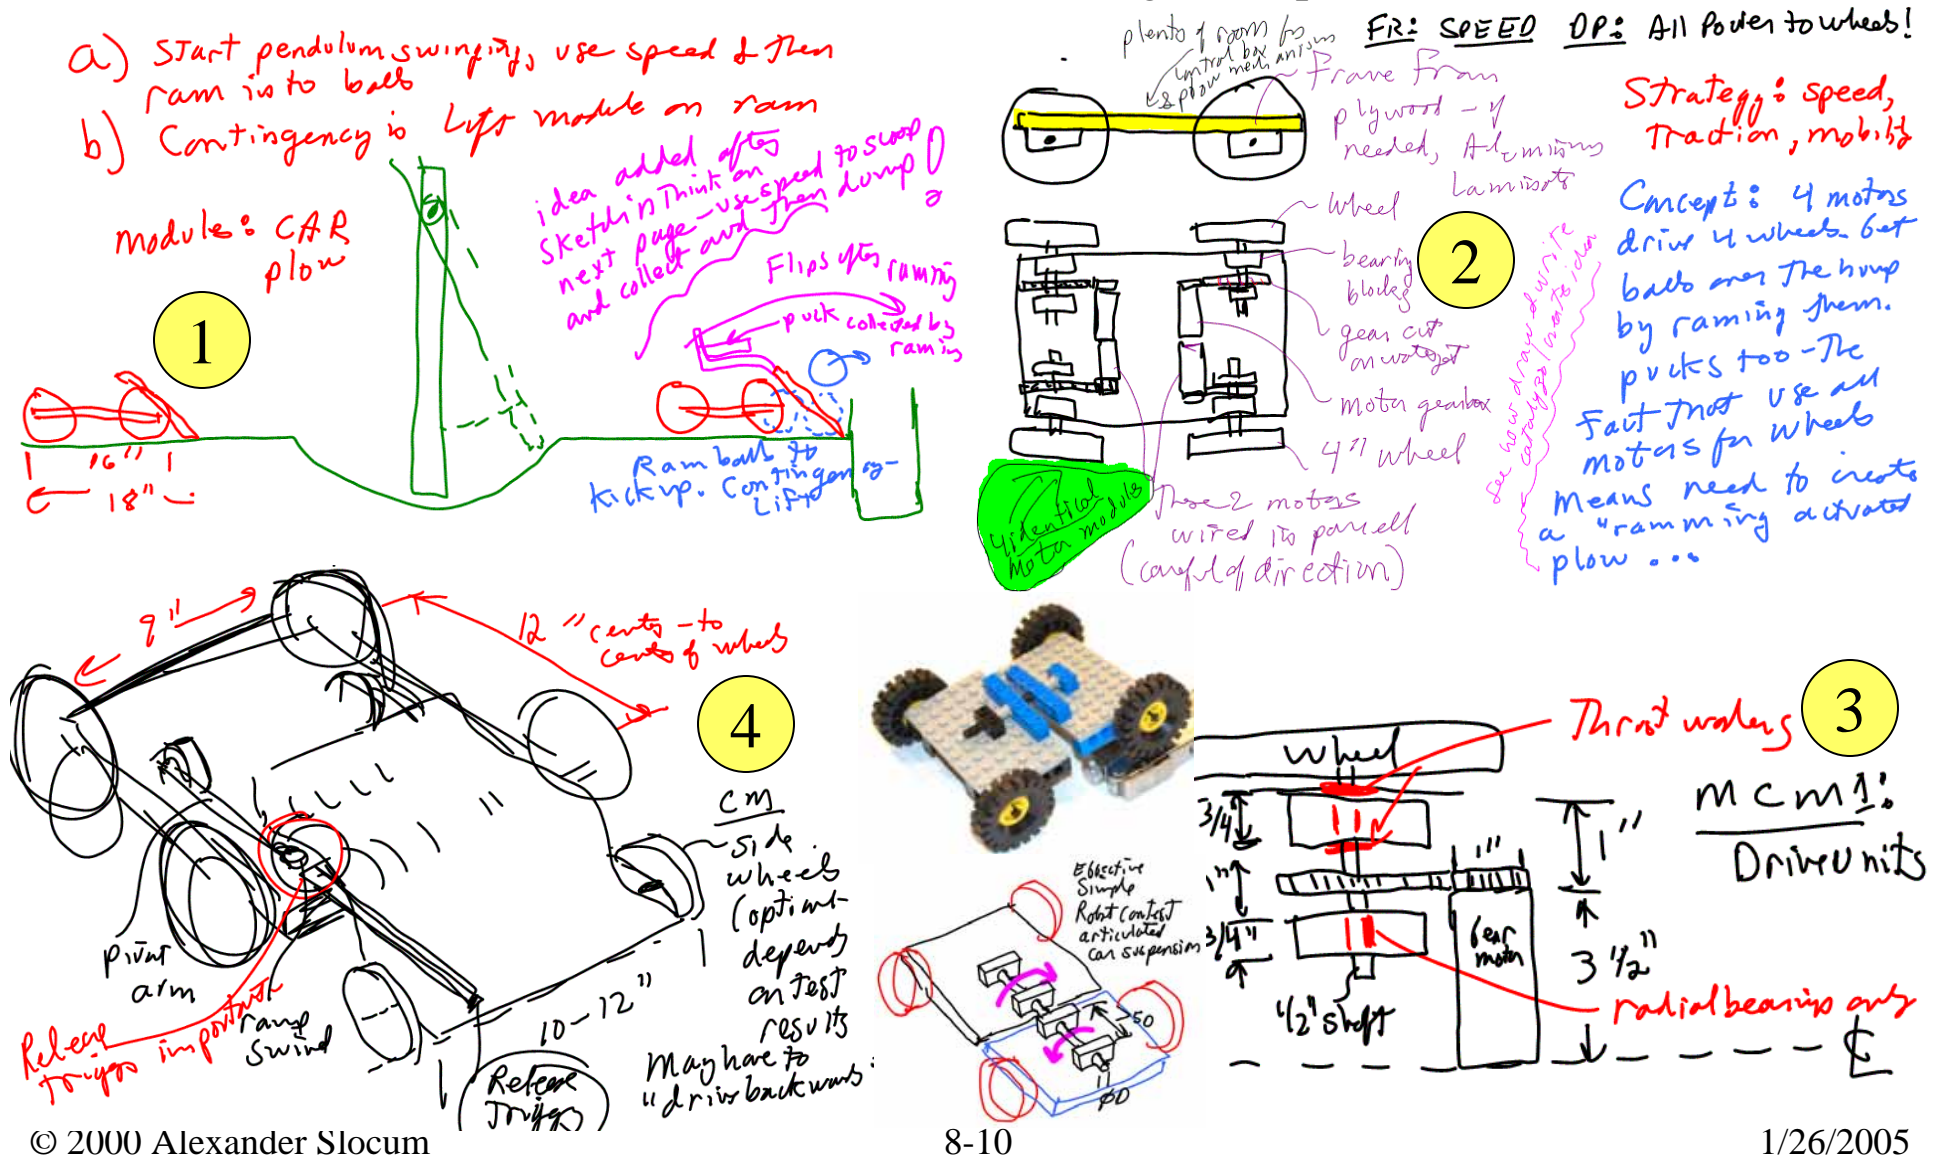 a) Start pendulum swinging, use speed & then
ram into balls
b) Contingency is Lift module on ram
Module: CAR
plow
1
16"
18"
idea added after
sketch in Think on
next page - use speed to scoop
and collect and then dump!
Flips after ramming
puck collected by
ramming
Ram balls to
kick up. Contingency -
Lift
plenty of room for
control box
& plow mechanisms
FR: SPEED DP: All Power to wheels!
Frame From
plywood - if
needed, Aluminum
Laminate
Strategy: speed,
Traction, mobility
wheel
bearing
blocks
gear cut
on waterjet
motor gearbox
4" wheel
2
4 identical
motor modules
These 2 motors
wired in parallel
(careful of direction)
See how drawed write
catalyzes/vents idea
Concept: 4 motors
drive 4 wheels. Get
balls over the hump
by raming them.
pucks too - The
Fact that use all
motors for wheels
means need to create
a "ramming activated
plow ...
9"
12" center - to
center of wheels
4
CM
side
wheels
(optional-
depends
on Test
results
May have to
"drive backwards"
pivot
arm
Release
Trigger important
ramp
swivel
10-12"
Release
Trigger
Effective
Simple
Robot Contest
articulated
car suspension
50
ØD
Wheel
Thrust washers
3
3/4"
1"
3/4"
1"
1"
Gear
motor
3 1/2"
1/2" shaft
radial bearings only
MCM1:
Drive Units
℄
© 2000 Alexander Slocum
8-10
1/26/2005